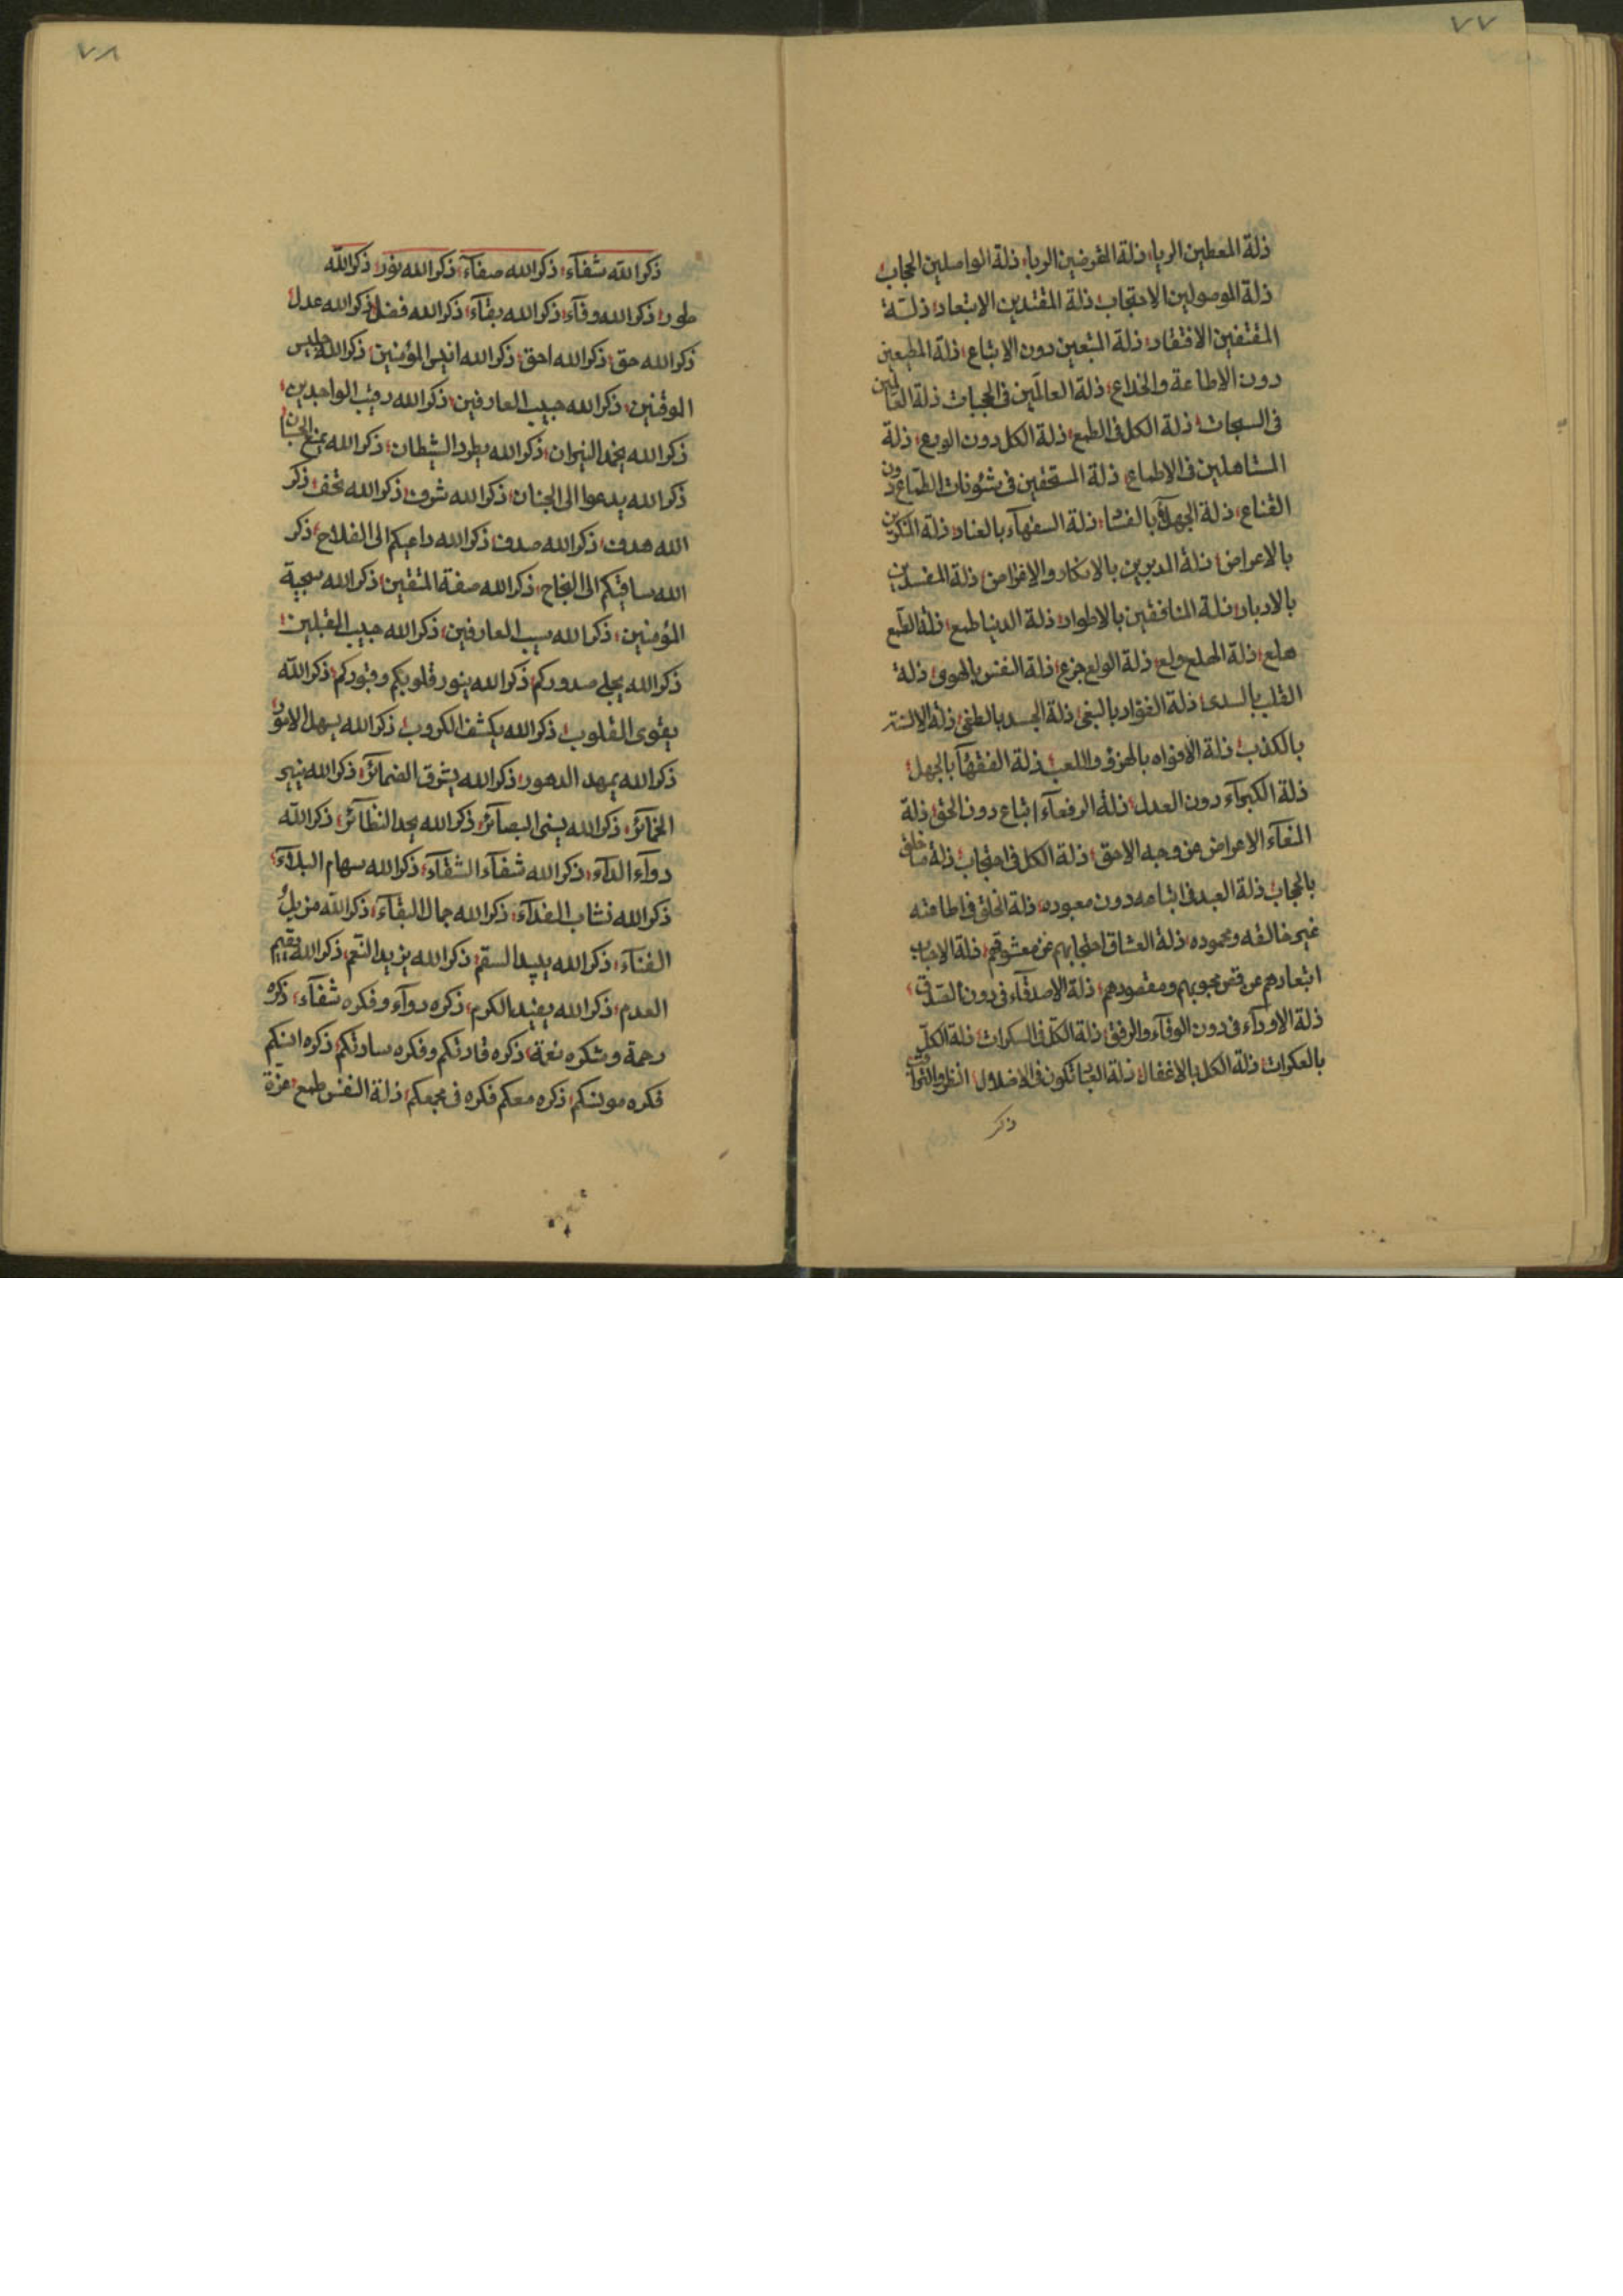 ٧٧
ذلة المعطين الريا؛ ذلة المقرضين الربا؛ ذلة الواصلين الحجاب؛
ذلة الموصولين الاحتجاب؛ ذلة المقتدين الابتعاد؛ ذلة
المقتفين الافتقاد؛ ذلة المتبعين دون الاتباع؛ ذلة المطيعين
دون الاطاعة والخداع؛ ذلة العالمين فى الحجبات ذلة العالمين
فى السبحات؛ ذلة الكل فى الطمع؛ ذلة الكل دون الورع؛ ذلة
المتاهلين فى الاطماع؛ ذلة المستحقين فى شئونات الطماع دون
القناع؛ ذلة الجهلآء بالفسا؛ ذلة السفهآء بالعناد؛ ذلة المنكرين
بالاعراض؛ ذلة المدبرين بالانكار والاغراض؛ ذلة المفسدين
بالادبار؛ ذلة المنافقين بالاطوار؛ ذلة الدنيا طمع؛ ذلة الطمع
هلع؛ ذلة الهلع ولع؛ ذلة الولع جزع؛ ذلة النفس بالهوى؛ ذلة
القلب بالسدى؛ ذلة الفؤاد بالبغى؛ ذلة الجسد بالطغى؛ ذلة الالسنة
بالكذب؛ ذلة الافواه بالهزؤ واللعب؛ ذلة الفقهآ بالجهل؛
ذلة الكبرآء دون العدل؛ ذلة الرفعآء اتباع دون الحق؛ ذلة
الاعراض عن وجه الاحق؛ ذلة الكل فى احتجاب؛ ذلة ما خلق
بالحجاب؛ ذلة العبد فى اتباعه دون معبوده؛ ذلة الخلق فى اطاعته
غير خالقه ومحموده؛ ذلة العشاق احتجابهم عن معشوقهم؛ ذلة الاحباب
ابتعادهم عن محبوبهم ومقصودهم؛ ذلة الاصدقآء فى دون الصدق؛
ذلة الاودآء فى دون الوفآء والرفق؛ ذلة الكل فى السكرات؛ ذلة الكل
بالعكرات؛ ذلة الكل بالاغفال؛ ذلة العباد تكون فى الاضلال؛ انظروا
ذكر
٧٨
ذكر الله شفآء؛ ذكر الله صفآء؛ ذكر الله نور؛ ذكر الله
طور؛ ذكر الله وفآء؛ ذكر الله بقآء؛ ذكر الله فضل؛ ذكر الله عدل؛
ذكر الله حق؛ ذكر الله احق؛ ذكر الله انيس المؤمنين؛ ذكر الله جليس
الموقنين؛ ذكر الله حبيب العارفين؛ ذكر الله رقيب الواجدين؛
ذكر الله يخمد النيران؛ ذكر الله يطرد الشيطان؛ ذكر الله يمنع
ذكر الله يدعوا الى الجنان؛ ذكر الله شرف؛ ذكر الله تحف؛ ذكر
الله هدف؛ ذكر الله صدف؛ ذكر الله داعيكم الى الفلاح؛ ذكر
الله ساقيكم الى النجاح؛ ذكر الله صفة المتقين؛ ذكر الله سجية
المؤمنين؛ ذكر الله سبب العارفين؛ ذكر الله حبيب المقبلين؛
ذكر الله يجلى صدوركم؛ ذكر الله ينور قلوبكم وقبوركم؛ ذكر الله
يقوى القلوب؛ ذكر الله يكشف الكروب؛ ذكر الله يسهل الامور؛
ذكر الله يمهد الدهور؛ ذكر الله يشرق الضمآئر؛ ذكر الله ينير
الخمآئر؛ ذكر الله يسنى البصآئر؛ ذكر الله يجد النظآئر؛ ذكر الله
دوآء الدآء؛ ذكر الله شفآء الشقآء؛ ذكر الله سهام البلآء؛
ذكر الله نشاب الفدآء؛ ذكر الله جمال البقآء؛ ذكر الله مزيل
الفنآء؛ ذكر الله يبيد السقم؛ ذكر الله يزيد النعم؛ ذكر الله يقيم
العدم؛ ذكر الله يفيد الكرم؛ ذكره دوآء وفكره شفآء؛ ذكره
رحمة وشكره نعمة؛ ذكره قادتكم وفكره سادتكم؛ ذكره انيسكم
فكره مونسكم؛ ذكره معكم فكره فى مجمعكم؛ ذلة النفس طمع؛ عزة